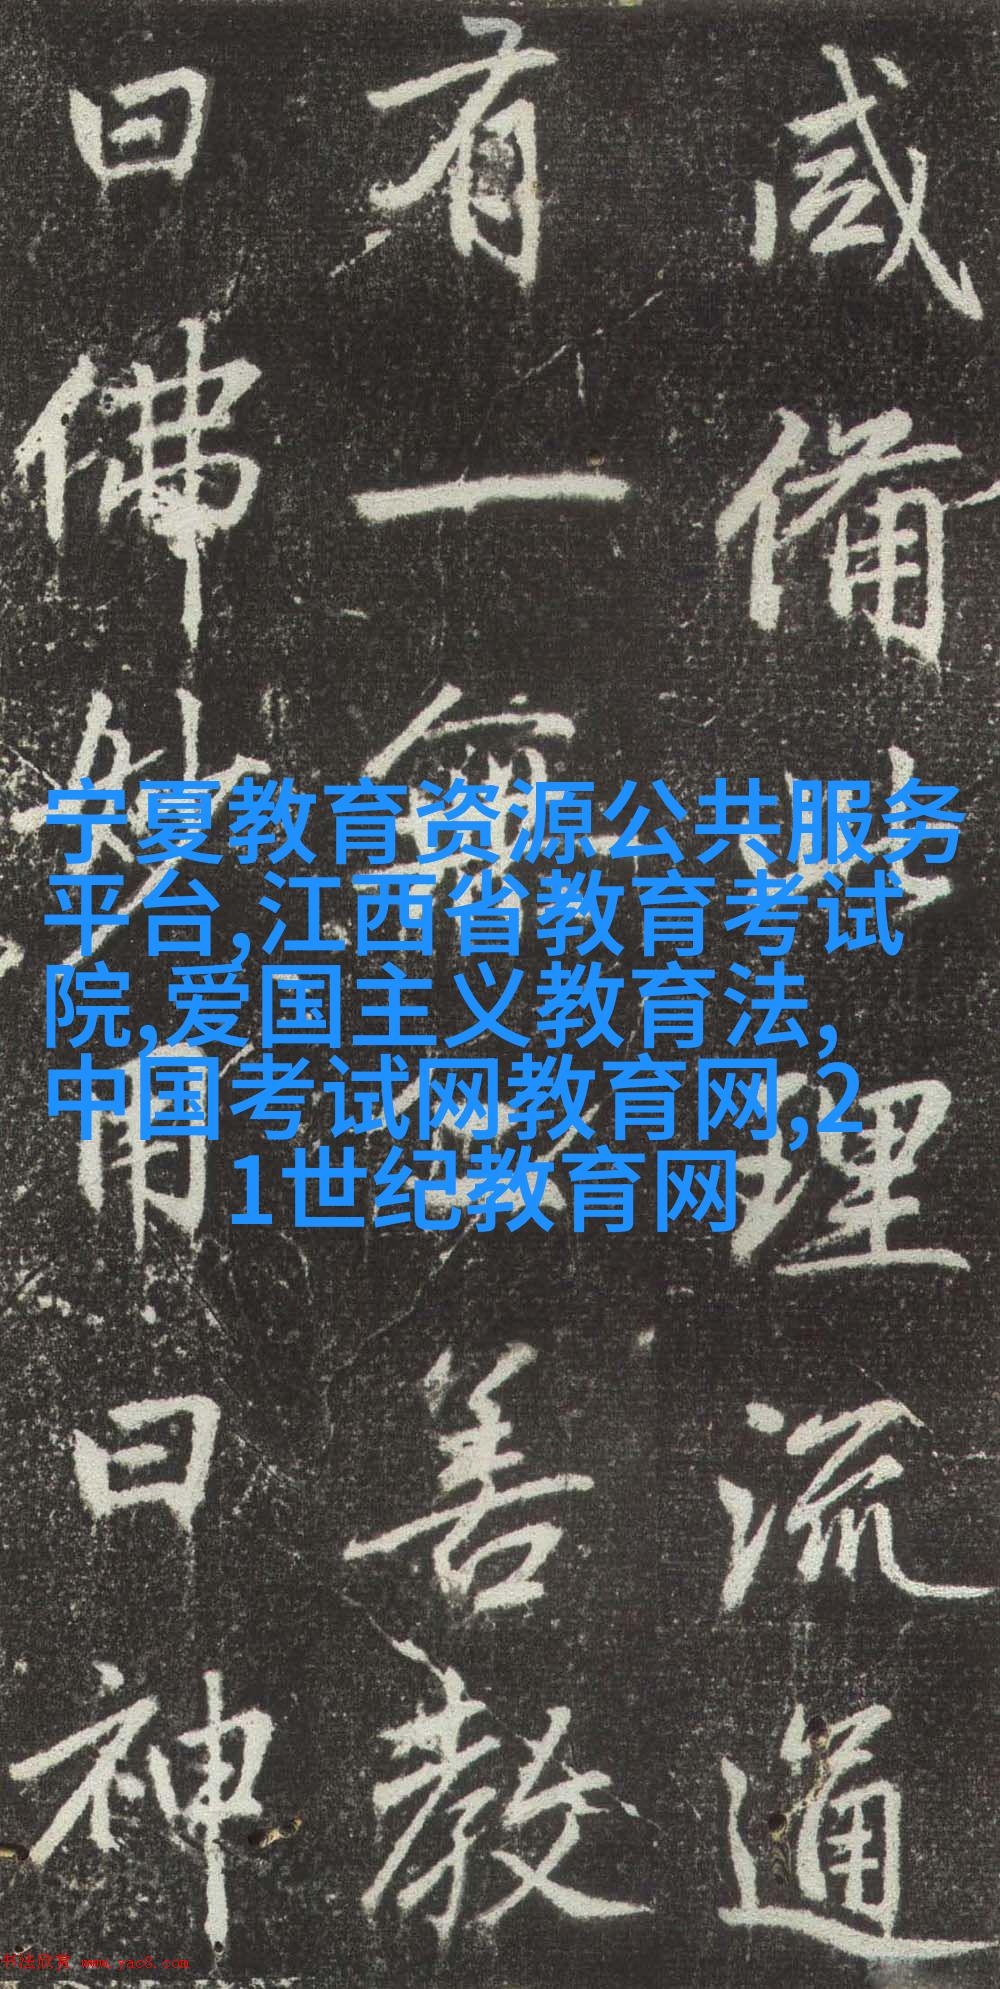 宁夏教育资源公共服务
平台,江西省教育考试
院,爱国主义教育法,
中国考试网教育网,2
1世纪教育网
咸備理流通
有一無善教
曰佛妙用曰神
书法欣赏 www.yac8.com